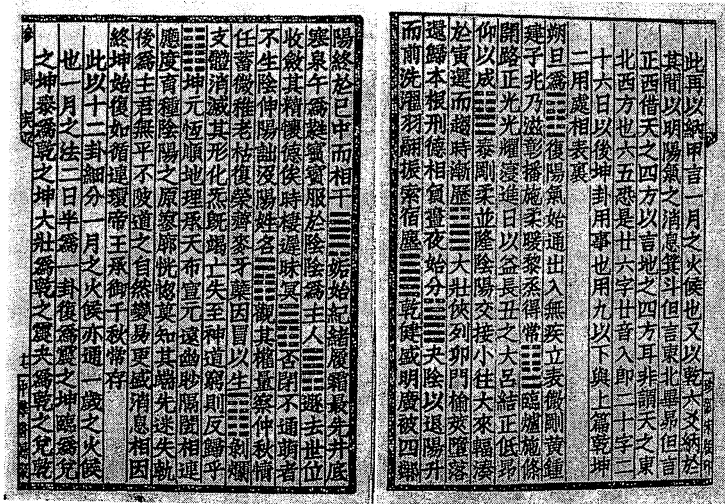 此再以納甲言一月之火候也又以乾六爻納於
其間以明陽氣之消息箕斗但言東北畢昴但言
正西借天之四方以言地之四方耳非謂天之東
北西方也六五恐是廿六字廿音入即二十字二
十六日以後坤卦用事也用九以下與上篇乾坤
二用處相表裏
朔旦爲䷗復陽氣始通出入無疾立表微剛黃鍾
建子兆乃滋彰播施柔暖黎烝得常䷒臨爐施條
開路正光光耀浸進日以益長丑之大呂結正低昂
仰以成䷊泰剛柔並隆陰陽交接小往大來輻湊
於寅運而趨時漸歷䷡大壯俠列卯門榆莢墮落
還歸本根刑德相負晝夜始分䷪夬陰以退陽升
而前洗濯羽翮振索宿塵䷀乾健盛明廣被四鄰
陽終於巳中而相干䷫姤始紀緒履霜最先井底
寒泉午爲蕤賓賓服於陰陰爲主人䷠遯去世位
收斂其精懷德俟時棲遲昧冥䷋否閉不通萌者
不生陰伸陽詘沒陽姓名䷓觀其權量察仲秋情
任蓄微稚老枯復榮薺麥牙蘗因冒以生䷖剝爛
支體消滅其形化炁既竭亡失至神道窮則反歸乎
䷁坤元恆順地理承天布宣元遠幽眇隔閡相連
應度育種陰陽之原寥廓恍惚莫知其端先迷失軌
後爲主君無平不陂道之自然變易更盛消息相因
終坤始復如循連環帝王承御千秋常存
此以十二卦細分一月之火候亦通一歲之火候
也一月之法二日半爲一卦復爲震之坤臨爲兌
之坤泰爲乾之坤大壯爲乾之震夬爲乾之兌乾